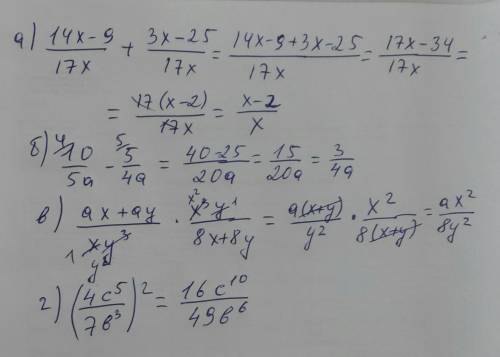 а) (14x-9)/17x + (3x-25)/17x = (14x-9+3x-25)/17x = (17x-34)/17x =
= 17(x-2)/17x = (x-2)/x
б) ⁴⁄10/5a - ⁵⁄5/4a = (40-25)/20a = 15/20a = 3/4a
в) (ax+ay)/xy³ · x³y¹/(8x+8y) = a(x+y)/y² · x²/8(x+y) = ax²/8y²
г) (4c⁵/7b³)² = 16c¹⁰/49b⁶